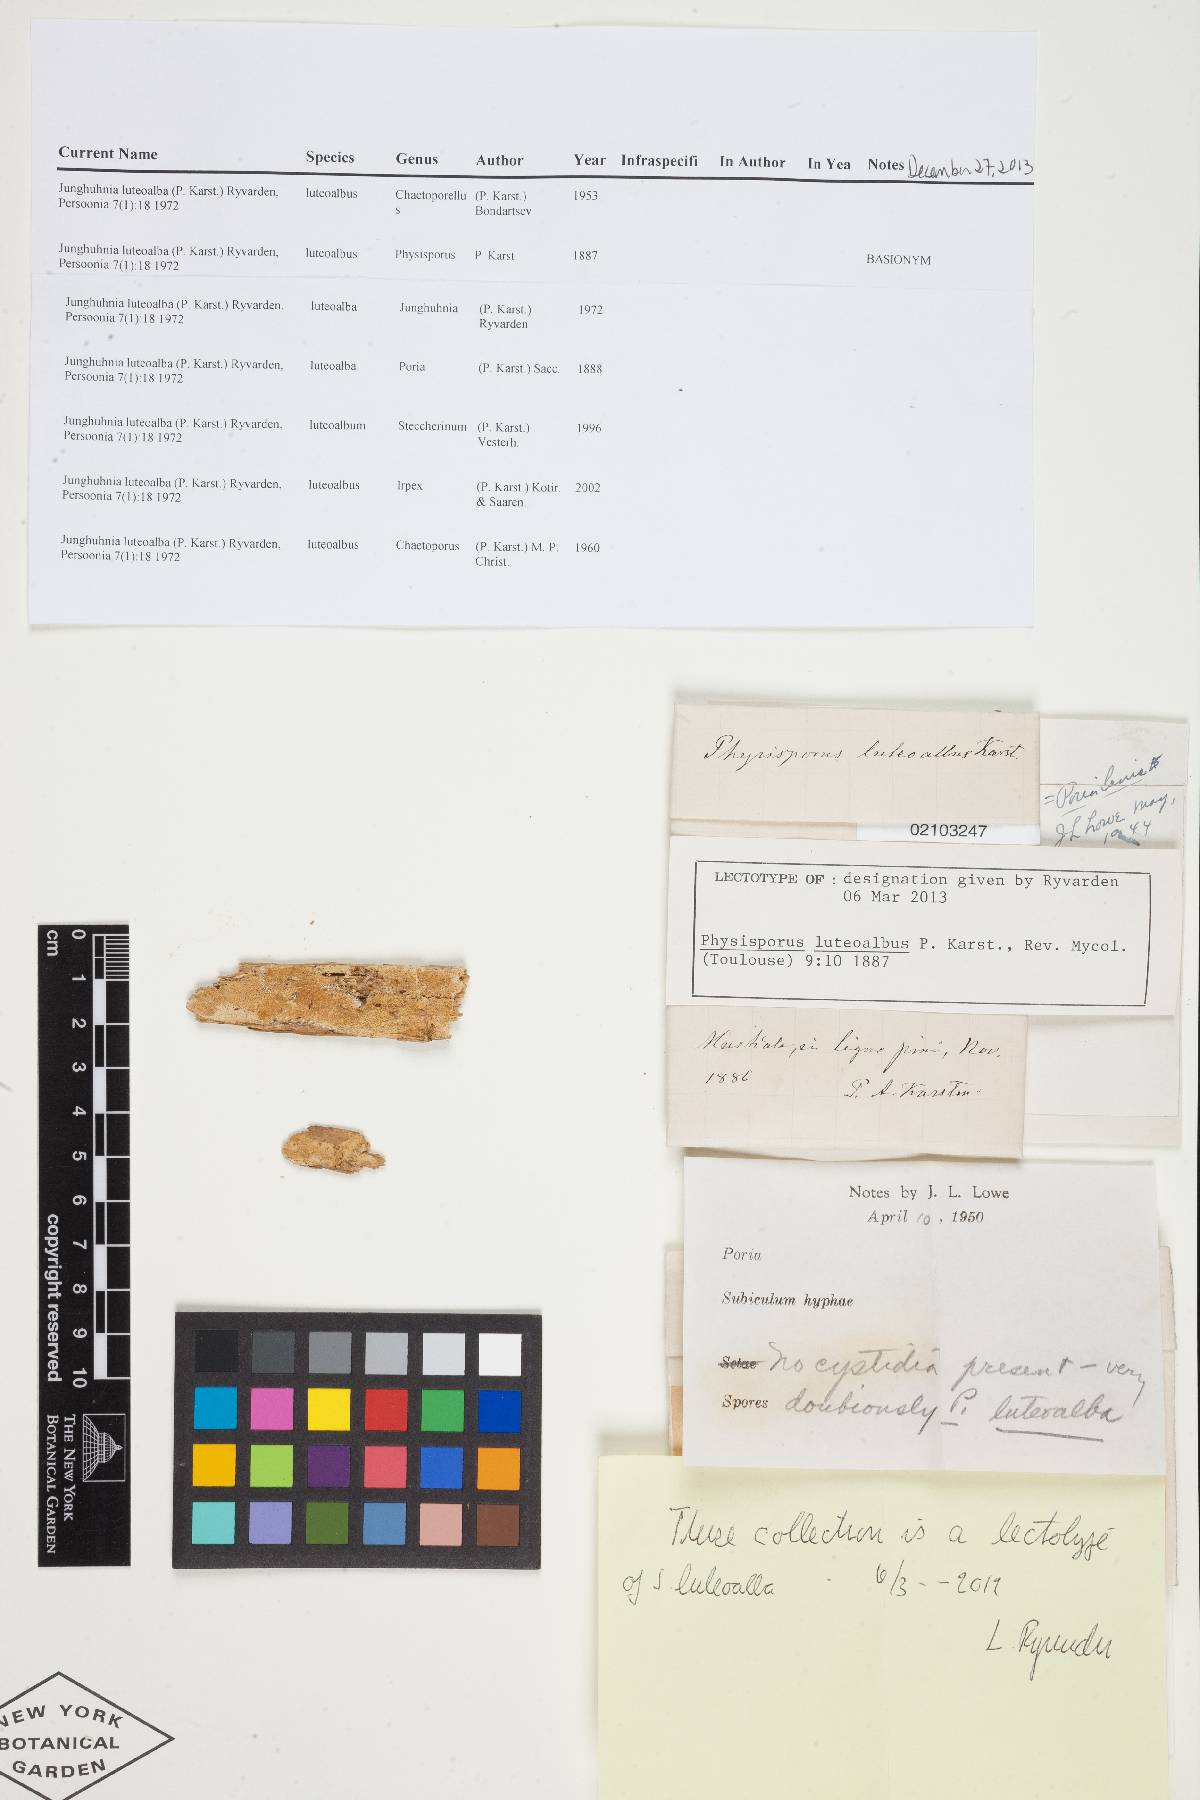 Current Name Species Genus Author Year Infraspecifi In Author In Yea Notes December 27, 2013
Junghuhnia luteoalba (P. Karst.) Ryvarden, luteoalbus Chaetoporellu (P. Karst.) 1953
Persoonia 7(1):18 1972 s Bondartsev
Junghuhnia luteoalba (P. Karst.) Ryvarden, luteoalbus Physisporus P. Karst. 1887
Persoonia 7(1):18 1972 BASIONYM
Junghuhnia luteoalba (P. Karst.) Ryvarden, luteoalba Junghuhnia (P. Karst.) 1972
Persoonia 7(1):18 1972 Ryvarden
Junghuhnia luteoalba (P. Karst.) Ryvarden, luteoalba Poria (P. Karst.) Sacc. 1888
Persoonia 7(1):18 1972
Junghuhnia luteoalba (P. Karst.) Ryvarden, luteoalbum Steccherinum (P. Karst.) 1996
Persoonia 7(1):18 1972 Vesterh.
Junghuhnia luteoalba (P. Karst.) Ryvarden, luteoalbus Irpex (P. Karst.) Kotir. 2002
Persoonia 7(1):18 1972 & Saaren.
Junghuhnia luteoalba (P. Karst.) Ryvarden, luteoalbus Chaetoporus (P. Karst.) M. P. 1960
Persoonia 7(1):18 1972 Christ.
Physisporus luteoalbus Karst.
= Poria lenis
J L Lowe May,
1944
02103247
LECTOTYPE OF : designation given by Ryvarden
06 Mar 2013
Physisporus luteoalbus P. Karst., Rev. Mycol.
(Toulouse) 9:10 1887
Mustiala, in ligno pini, Nov.
1886
P. A. Karsten
Notes by J. L. Lowe
April 10, 1950
Poria
Subiculum hyphae
Setae No cystidia present - very
Spores doubiously P. luteoalba
These collection is a lectotype
of S. luteoalba 6/3 - - 201
L. Ryvarden
cm
0 1 2 3 4 5 6 7 8 9 10
copyright reserved
THE NEW YORK
BOTANICAL GARDEN
NEW YORK
BOTANICAL
GARDEN